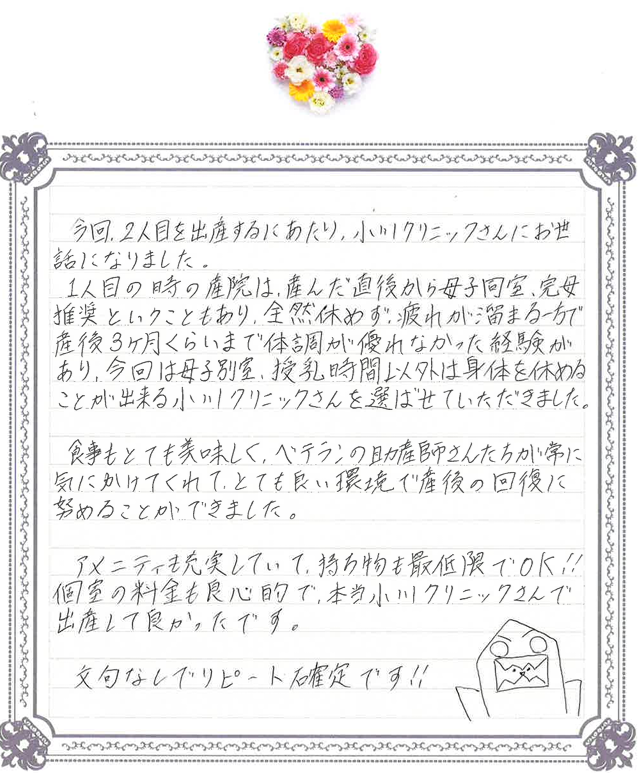 今回、2人目を出産するにあたり、小川クリニックさんにお世
話になりました。
1人目の時の産院は、産んだ直後から母子同室、完母
推奨ということもあり、全然休めず、疲れが溜まる一方で
産後3ヶ月くらいまで体調が優れなかった経験が
あり、今回は母子別室、授乳時間以外は身体を休める
ことが出来る小川クリニックさんを選ばせていただきました。
食事もとても美味しく、ベテランの助産師さんたちが常に
気にかけてくれて、とても良い環境で産後の回復に
努めることができました。
アメニティも充実していて、持ち物も最低限でOK!!
個室の料金も良心的で、本当小川クリニックさんで
出産して良かったです。
文句なしでリピート確定です!!